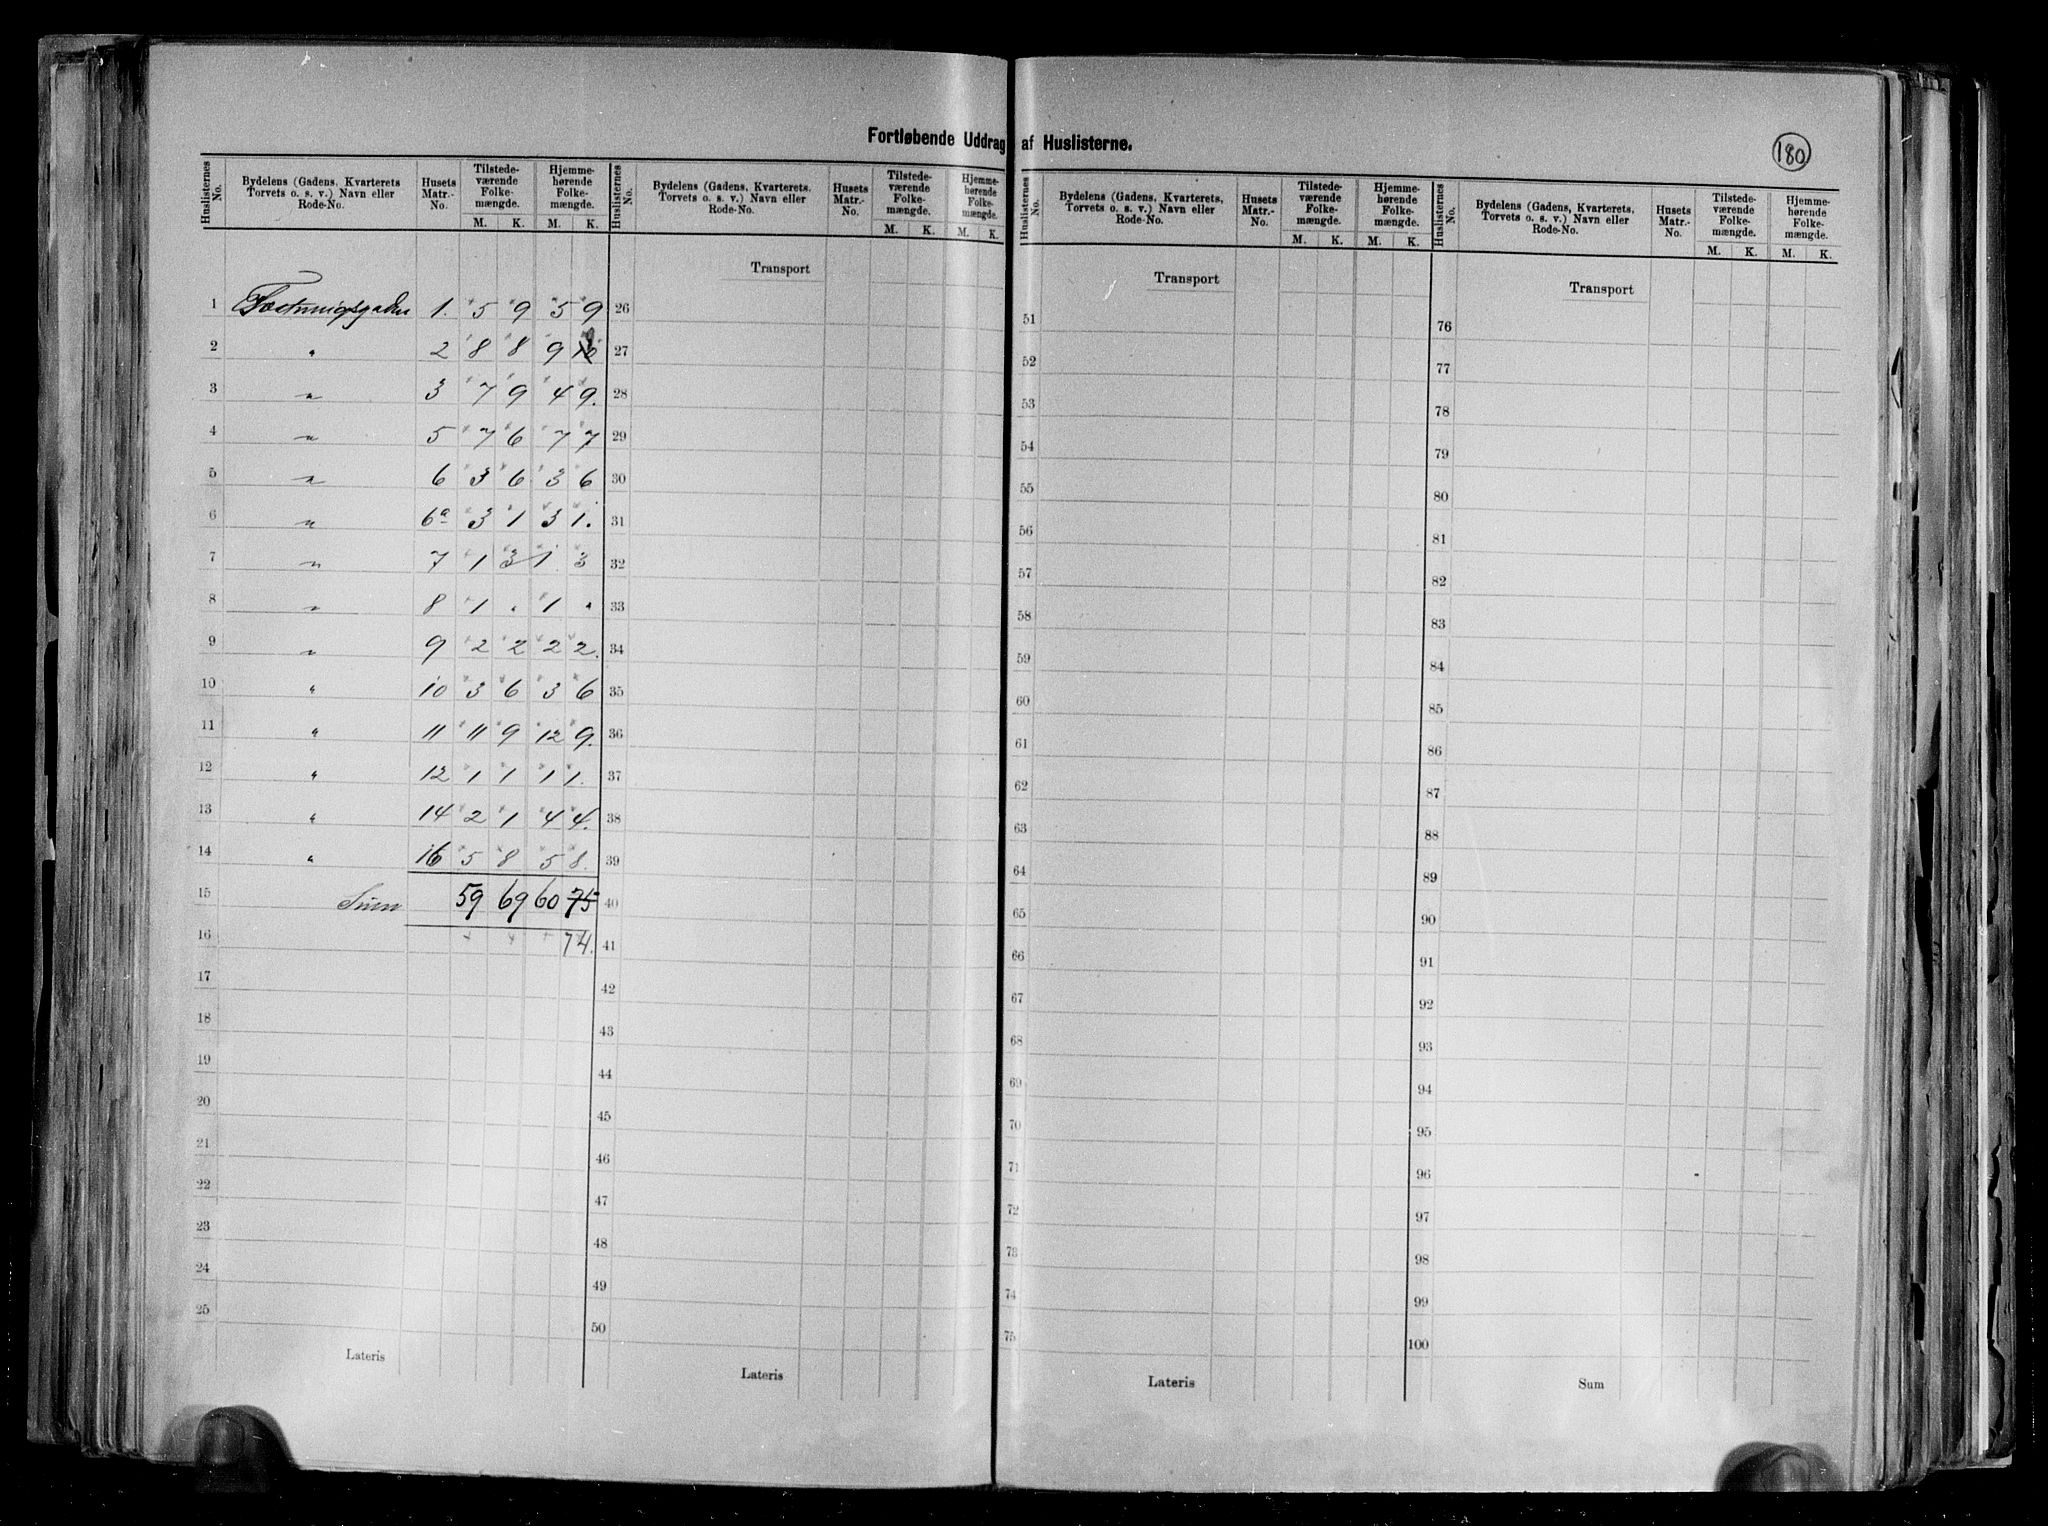 Fortløbende Uddrag af Huslisterne.
180
Huslisternes No. | Bydelens (Gadens, Kvarterets Torvets o. s. v.) Navn eller Rode-No. | Husets Matr.-No. | Tilstede-værende Folke-mængde. M. K. | Hjemme-hørende Folke-mængde. M. K.
1 Fæstningsgaden 1. 5 9 5 9
2 " 2 8 8 9 10 9
3 " 3 7 9 4 9.
4 " 5 7 6 7 7
5 " 6 3 6 3 6
6 " 6a 3 1 3 1.
7 " 7 1 3 1. 3
8 " 8 1 . 1 .
9 " 9 2 2 2 2.
10 " 10 3 6 3 6
11 " 11 11 9 12 9.
12 " 12 1 1 1 1.
13 " 14 2 1 4 4.
14 " 16 5 8 5 8.
15 Sum 59 69 60 75
16 74.
17
18
19
20
21
22
23
24
25
Lateris
Huslisternes No. | Bydelens (Gadens, Kvarterets, Torvets o. s. v.) Navn eller Rode-No. | Husets Matr.-No. | Tilstede-værende Folke-mængde. M. K. | Hjemme-hørende Folke-mængde. M. K.
Transport
26
27
28
29
30
31
32
33
34
35
36
37
38
39
40
41
42
43
44
45
46
47
48
49
50
Lateris
Huslisternes No. | Bydelens (Gadens, Kvarterets, Torvets o. s. v.) Navn eller Rode-No. | Husets Matr.-No. | Tilstede-værende Folke-mængde. M. K. | Hjemme-hørende Folke-mængde. M. K.
Transport
51
52
53
54
55
56
57
58
59
60
61
62
63
64
65
66
67
68
69
70
71
72
73
74
75
Lateris
Huslisternes No. | Bydelens (Gadens, Kvarterets, Torvets o. s. v.) Navn eller Rode-No. | Husets Matr.-No. | Tilstede-værende Folke-mængde. M. K. | Hjemme-hørende Folke-mængde. M. K.
Transport
76
77
78
79
80
81
82
83
84
85
86
87
88
89
90
91
92
93
94
95
96
97
98
99
100
Sum